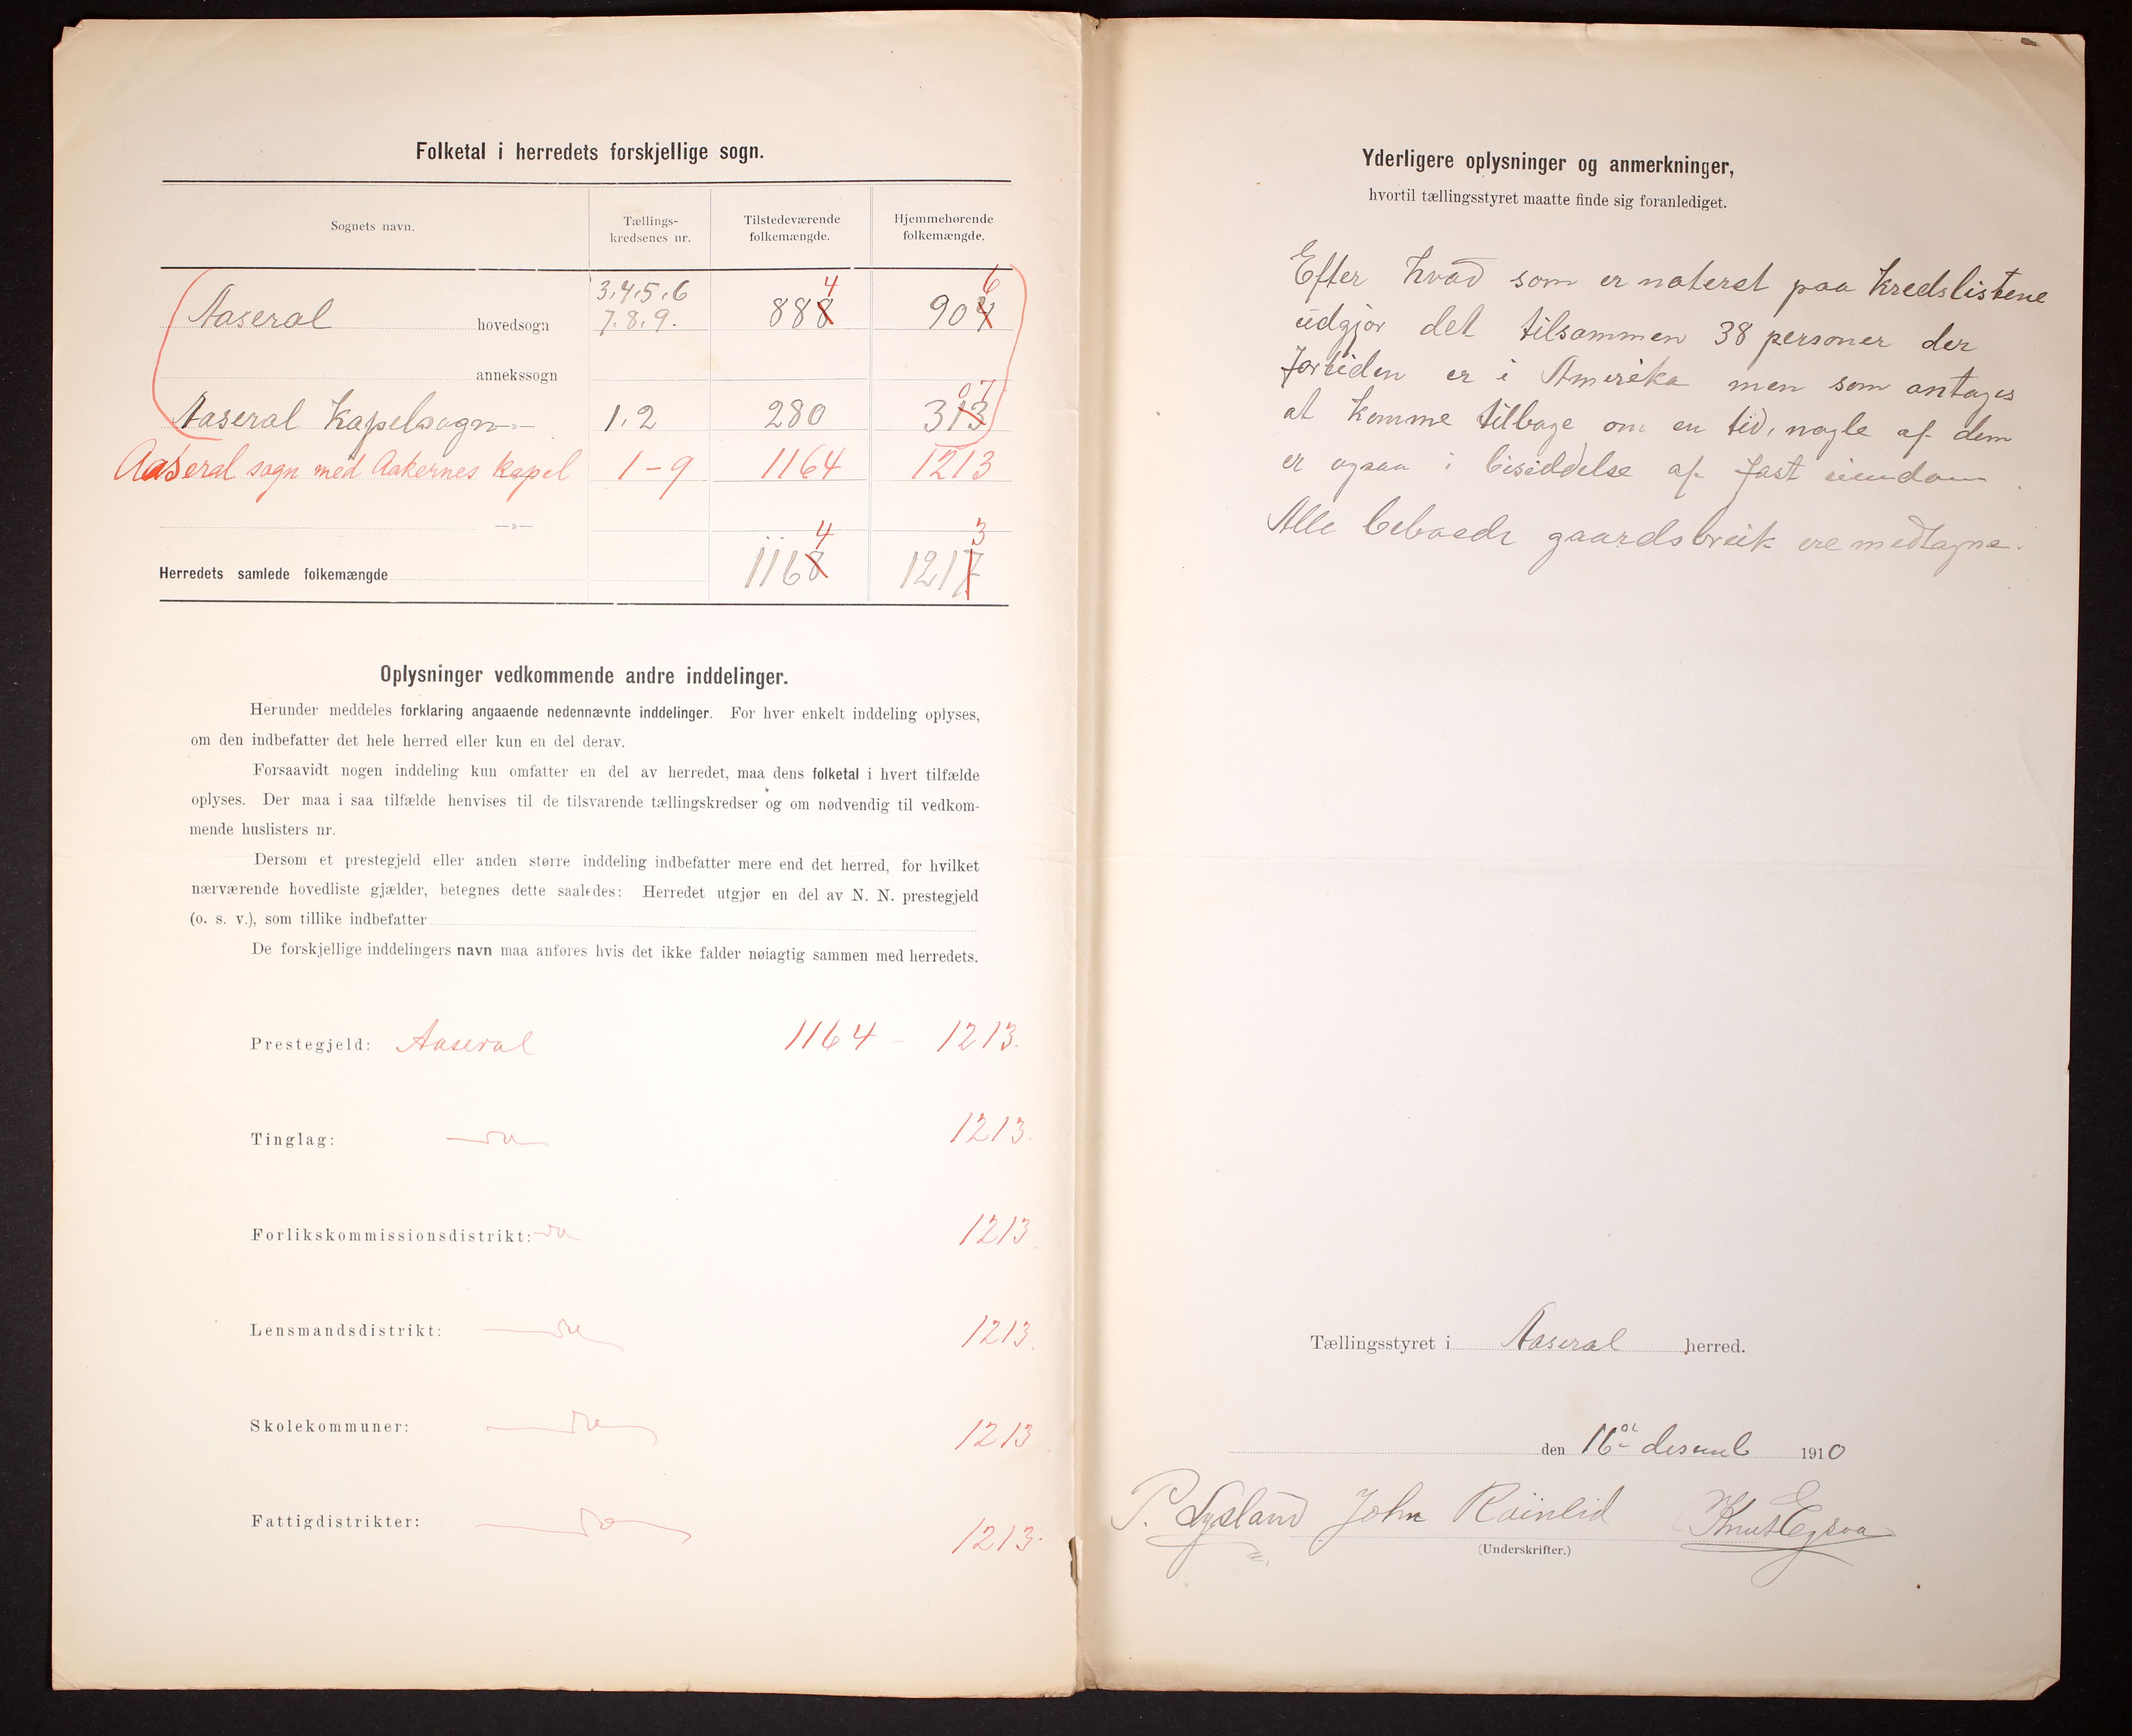 Folketal i herredets forskjellige sogn.
Sognets navn.
Tællings-
kredsenes nr.
Tilstedeværende
folkemængde.
Hjemmehørende
folkemængde.
Aaseral hovedsogn 3,4,5,6 7.8.9. 888 4 904 6
annekssogn
Aaseral Kapelsogn —»— 1.2 280 313 07
Aaseral sogn med Aakernes kapel 1-9 1164 1213
—»—
Herredets samlede folkemængde 1168 4 1217 3
Oplysninger vedkommende andre inddelinger.
Herunder meddeles forklaring angaaende nedennævnte inddelinger. For hver enkelt inddeling oplyses,
om den indbefatter det hele herred eller kun en del derav.
Forsaavidt nogen inddeling kun omfatter en del av herredet, maa dens folketal i hvert tilfælde
oplyses. Der maa i saa tilfælde henvises til de tilsvarende tællingskredser og om nødvendig til vedkom-
mende huslisters nr.
Dersom et prestegjeld eller anden større inddeling indbefatter mere end det herred, for hvilket
nærværende hovedliste gjælder, betegnes dette saaledes: Herredet utgjør en del av N. N. prestegjeld
(o. s. v.), som tillike indbefatter
De forskjellige inddelingers navn maa anføres hvis det ikke falder nøiagtig sammen med herredets.
Prestegjeld: Aaseral 1164 - 1213.
Tinglag: — do — 1213.
Forlikskommissionsdistrikt: — do 1213.
Lensmandsdistrikt: — do 1213.
Skolekommuner: — do 1213
Fattigdistrikter: — do 1213.
Yderligere oplysninger og anmerkninger,
hvortil tællingsstyret maatte finde sig foranlediget.
Efter hvad som er noteret paa kredslistene
udgjør det tilsammen 38 personer der
fortiden er i Amerika men som antages
at komme tilbage om en tid, nogle af dem
er ogsaa i besiddelse af fast eiendom
Alle beboede gaardsbruk ere medtagne.
Tællingsstyret i Aaseral herred.
den 16de desemb 1910
P. Lysland John Röinlid Knut Egsaa
(Underskrifter.)